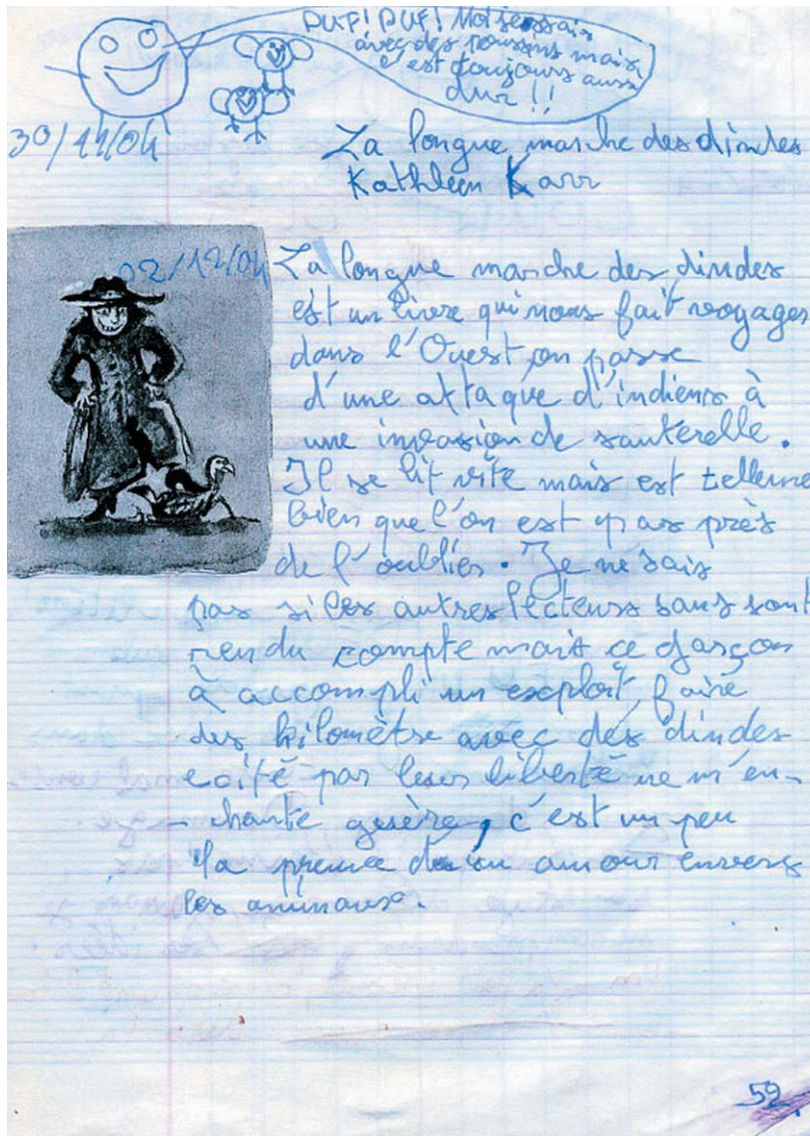 PUF! PUF! Moi j'essais
avec des poussins mais
c'est toujours aussi
dur !!
30/11/04
La longue marche des dindes
Kathleen Karr
02/12/04
La longue marche des dindes
est un livre qui nous fait voyages
dans l'Ouest on passe
d'une attaque d'indiens à
une invasion de sauterelle.
Il se lit vite mais est telleme
bien que l'on est pas près
de l'oublier. Je ne sais
pas si les autres lecteurs sans sont
rendu compte mais ce garçon
à accompli un exploit, faire
des kilomètre avec des dindes
exité par leurs liberté ne m'en-
- chante guère, c'est un peu
la preuve d'un amour envers
les animaux.
52